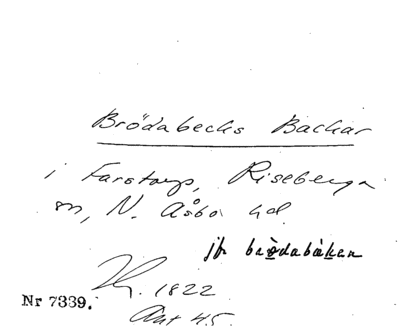 Brödabecks Backar
i Farstorp, Riseberga
sn, N. Åsbo hd
jfr brödabäken
1822
Nr 7339.
Ant 45.